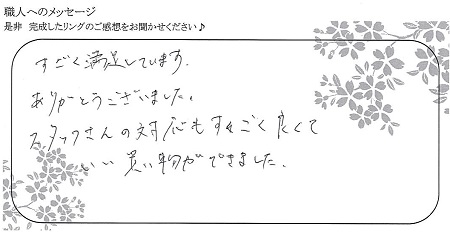 職人へのメッセージ
是非 完成したリングのご感想をお聞かせください♪
すごく満足しています.
ありがとうございました。
スタッフさんの対応もすごく良くて
いい買い物ができました.